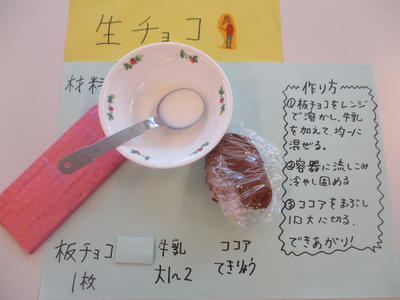 生チョコ
材料
作り方
①板チョコをレンジ
で溶かし、牛乳
を加えて、均一に
混ぜる。
②容器に流しこみ
冷やし固める
③ココアをまぶし
一口大に切る。
できあがり!
板チョコ
1枚
牛乳
大1〜2
ココア
てきりょう